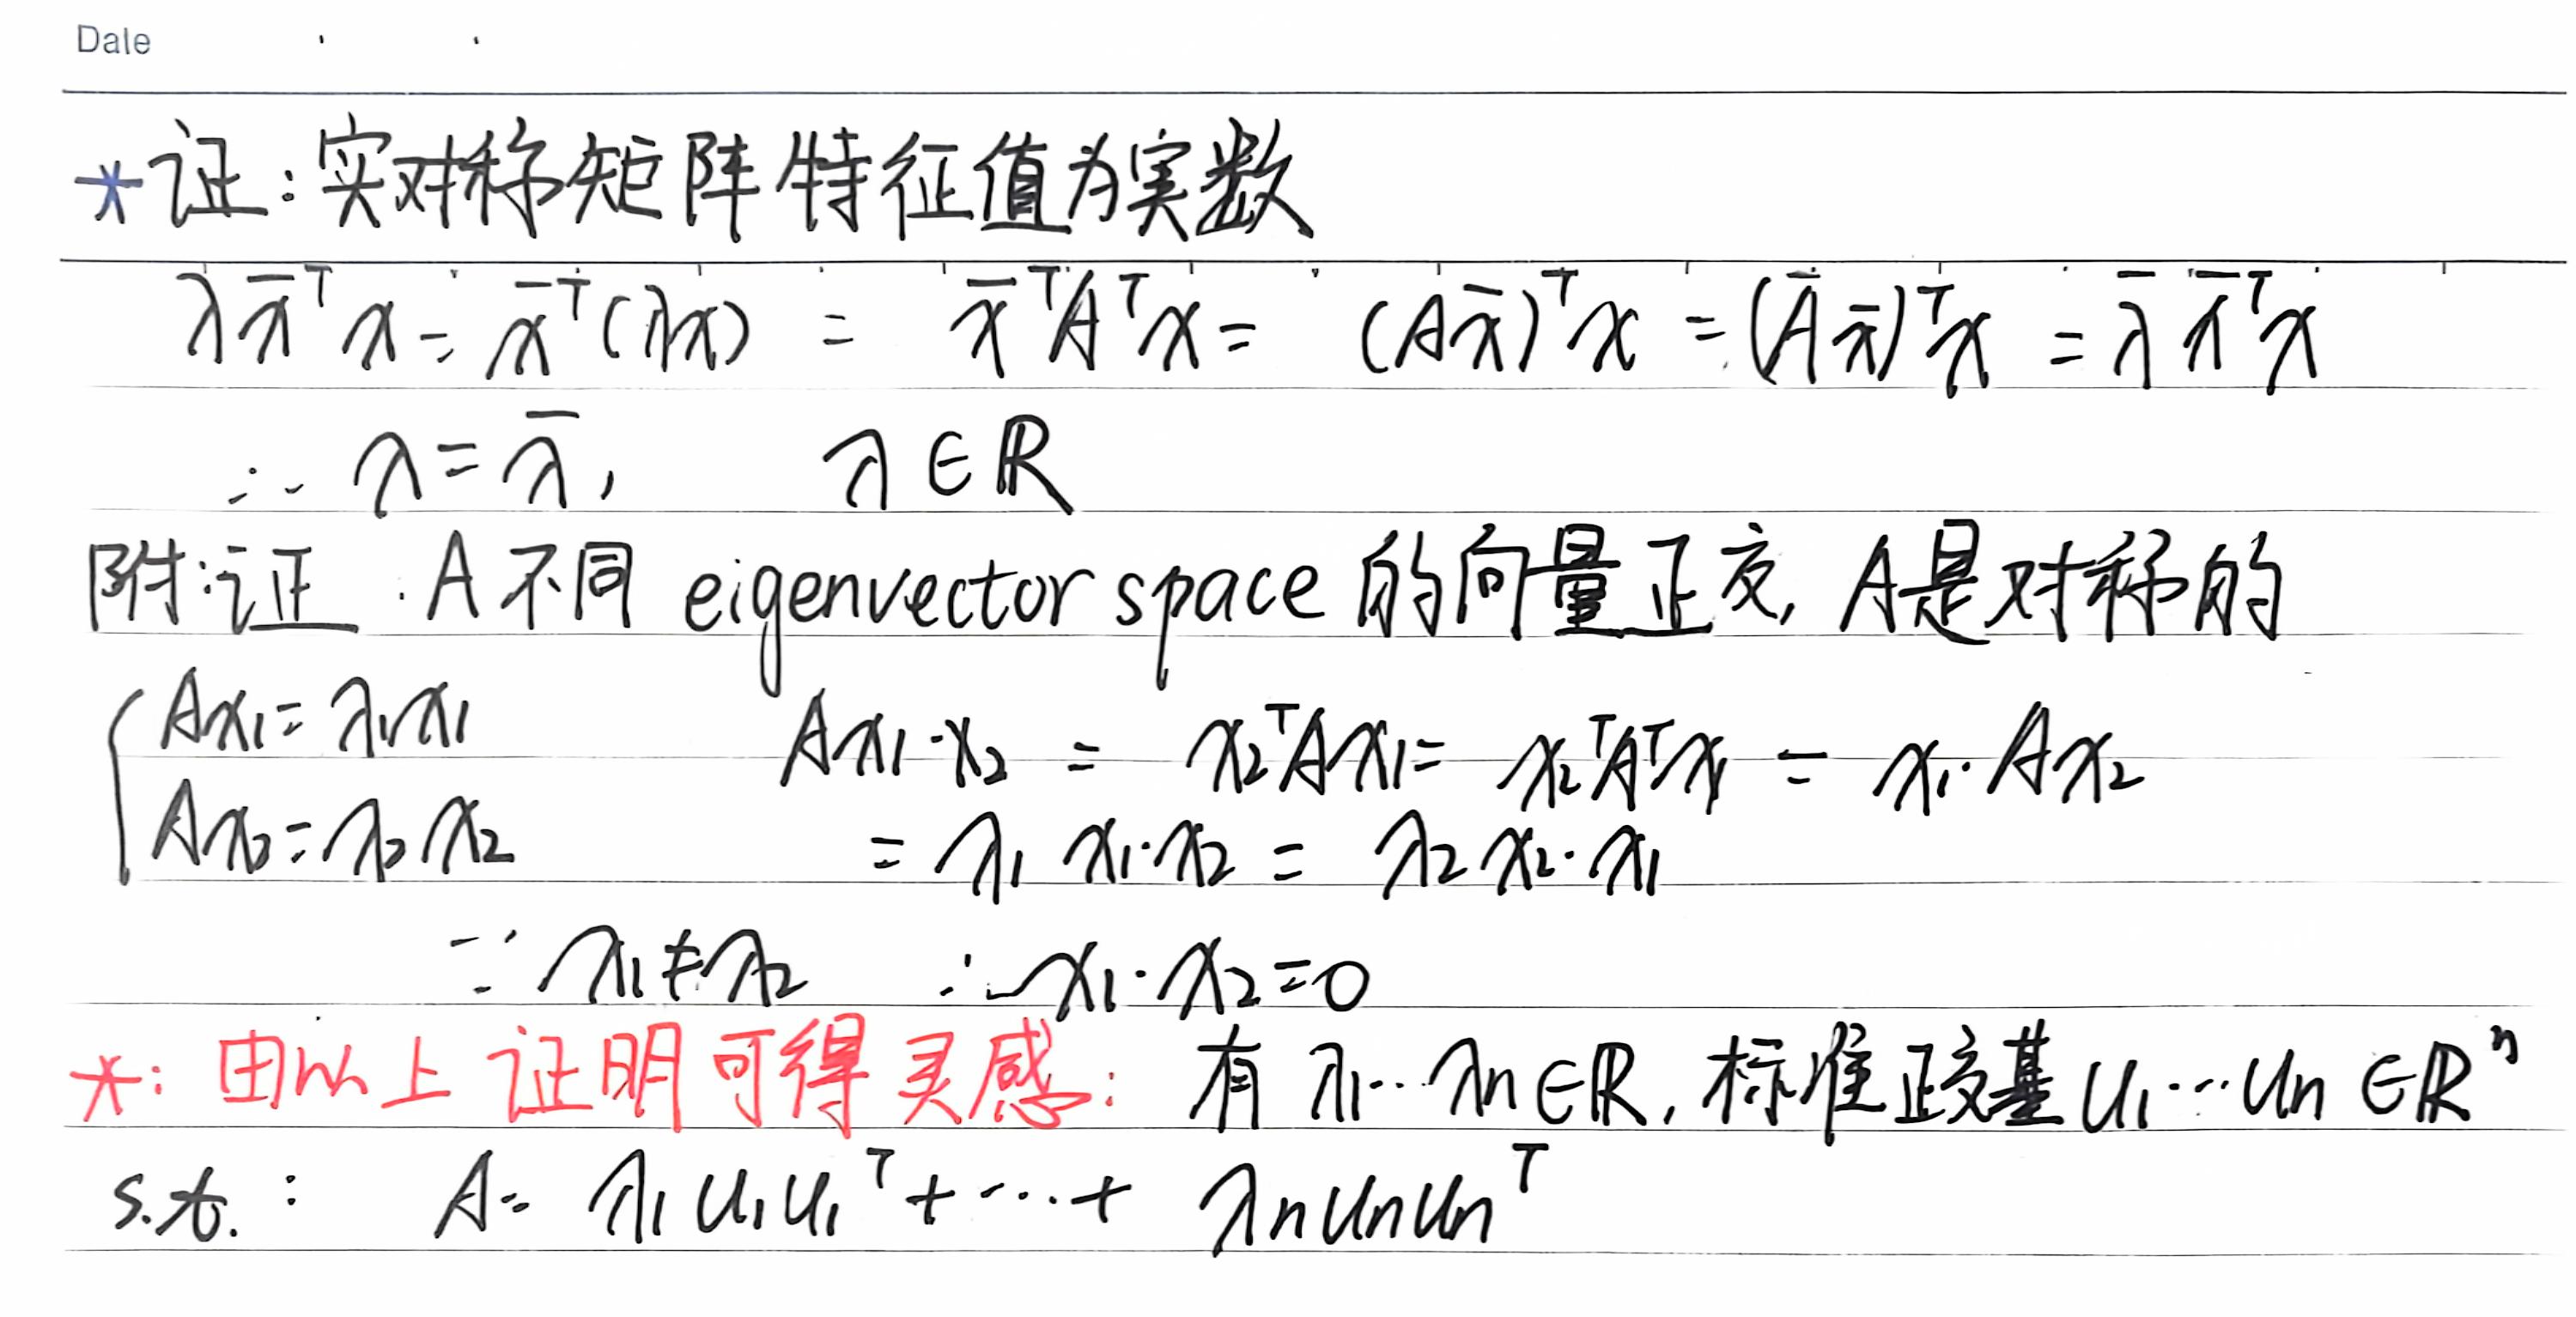 Date
*证:实对称矩阵特征值为实数
λx̄ᵀx = x̄ᵀ(λx) = x̄ᵀAᵀx = (Ax̄)ᵀx = (Āx̄)ᵀx = λ̄x̄ᵀx
∴ λ = λ̄, λ∈ℝ
附:证:A不同 eigenvector space 的向量正交, A是对称的
{ Ax₁=λ₁x₁ Ax₁·x₂ = x₂ᵀAx₁ = x₂ᵀAᵀx₁ = x₁·Ax₂
Ax₂=λ₂x₂ = λ₁x₁·x₂ = λ₂x₂·x₁
∵ λ₁≠λ₂ ∴ x₁·x₂=0
*: 由以上证明可得灵感: 有λ₁…λn∈ℝ, 标准正交基u₁…un∈ℝⁿ
s.t.: A = λ₁u₁u₁ᵀ + … + λnununᵀ